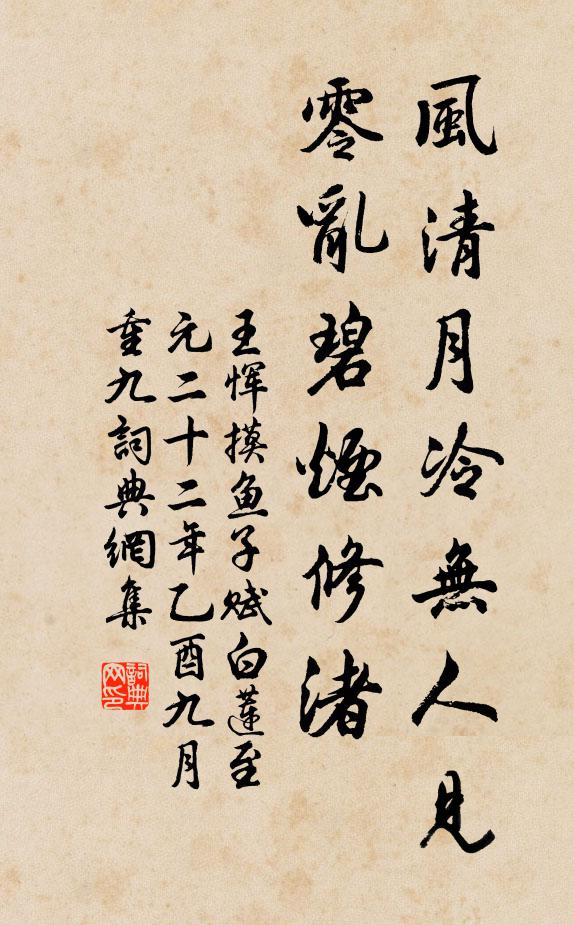 風清月冷無人見
零亂碧煙修渚
王惲摸鱼子赋白蓮至
元二十二年乙酉九月
重九詞典網集
詞典
网印